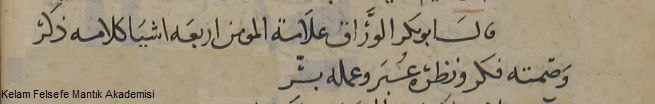 قال ابو بكر الورَّاق علامة المومن اربعه اشيا كلامه ذكر
وصمته فكر ونظره عبر وعمله برّ
Kelam Felsefe Mantık Akademisi